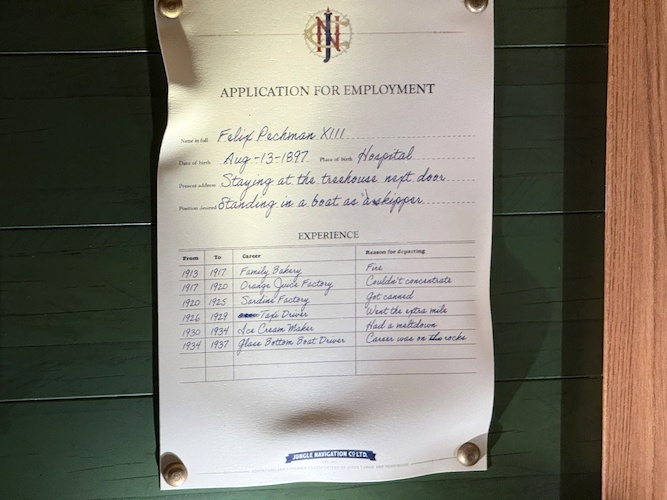 JN
APPLICATION FOR EMPLOYMENT
Name in full Felix Pechman XIII
Date of birth Aug-13-1897 Place of birth Hospital
Present address Staying at the treehouse next door
Position desired Standing in a boat as a skipper
EXPERIENCE
From To Career Reason for departing
1913 1917 Family Bakery Fire
1917 1920 Orange Juice Factory Couldn't concentrate
1920 1925 Sardine Factory Got canned
1926 1929 Taxi Driver Went the extra mile
1930 1934 Ice Cream Maker Had a meltdown
1934 1937 Glass Bottom Boat Driver Career was on the rocks
JUNGLE NAVIGATION CO LTD.